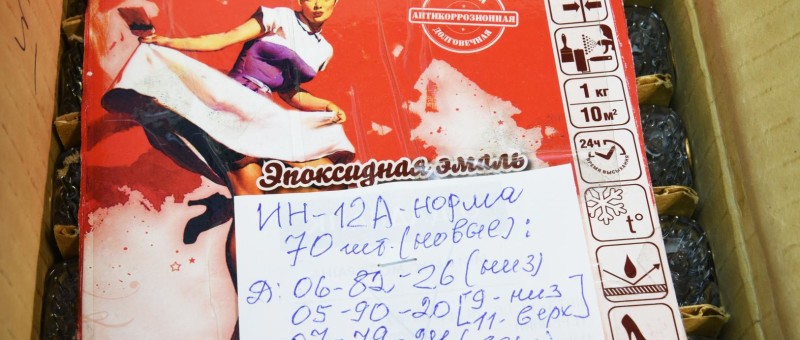 АНТИКОРРОЗИОННАЯ
ДОЛГОВЕЧНАЯ
1 кг
10 м²
24Ч
t°
Эпоксидная эмаль
ИН-12А-норма
70 шт. (новые):
Д: 06-82-26 (низ)
05-90-20 [9-низ
11-верх]
07-79-